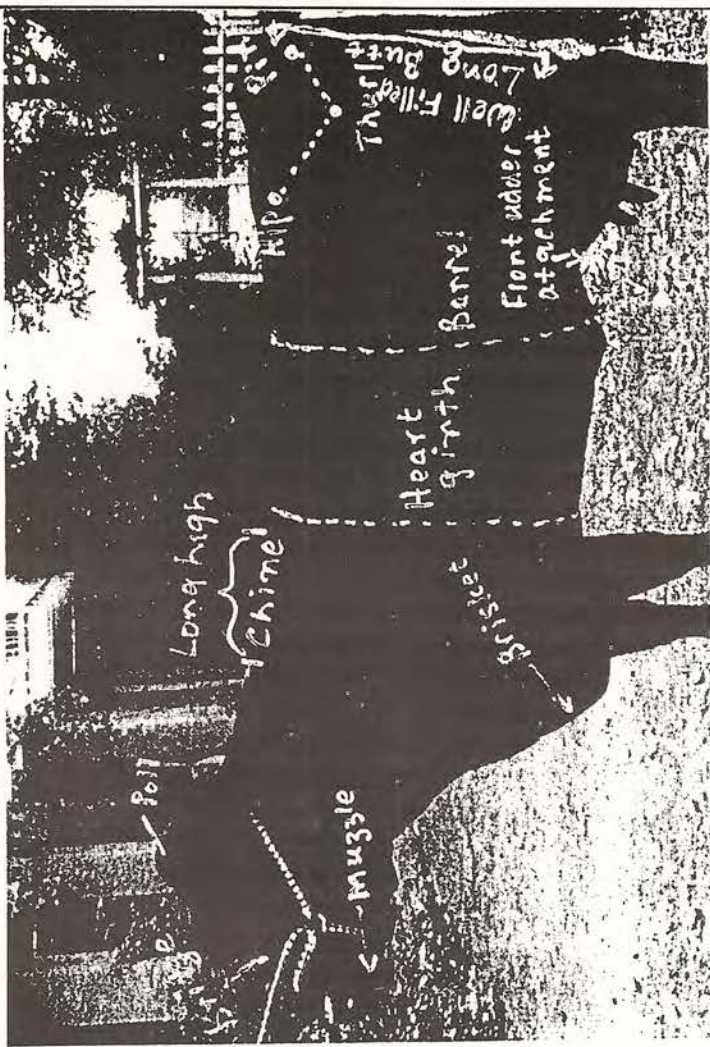 Poll
Long high
Chine
Muzzle
Brisket
Heart
girth
Barrel
Front udder
attachment
Hip
Thurl
Well Filled
Long Butt